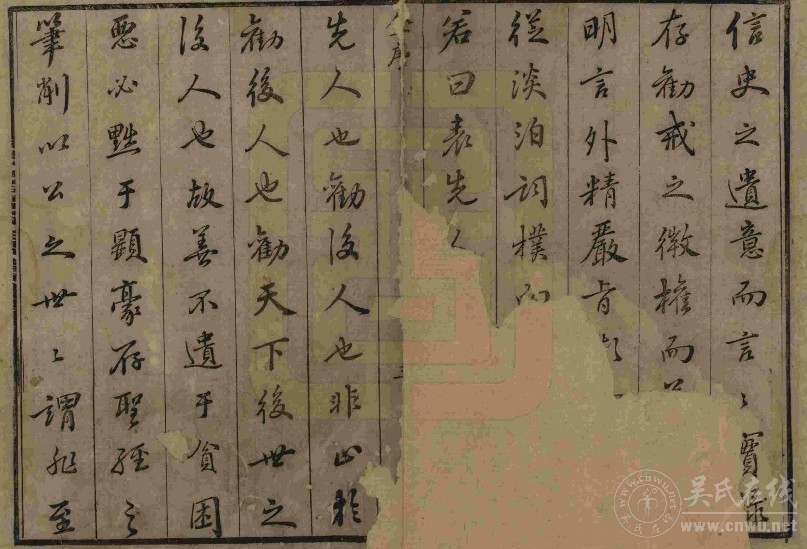 信史之遺意而言〻實
存勸戒之微權而
明言外精嚴旨
從淡泊詞樸而
若曰表先人
先人也勸後人也非止
勸後人也勸天下後世之
後人也故善不遺于貧困
惡必黜于顯豪存聖經之
筆削以公之世〻謂非至
吴氏在线
www.cnwu.net